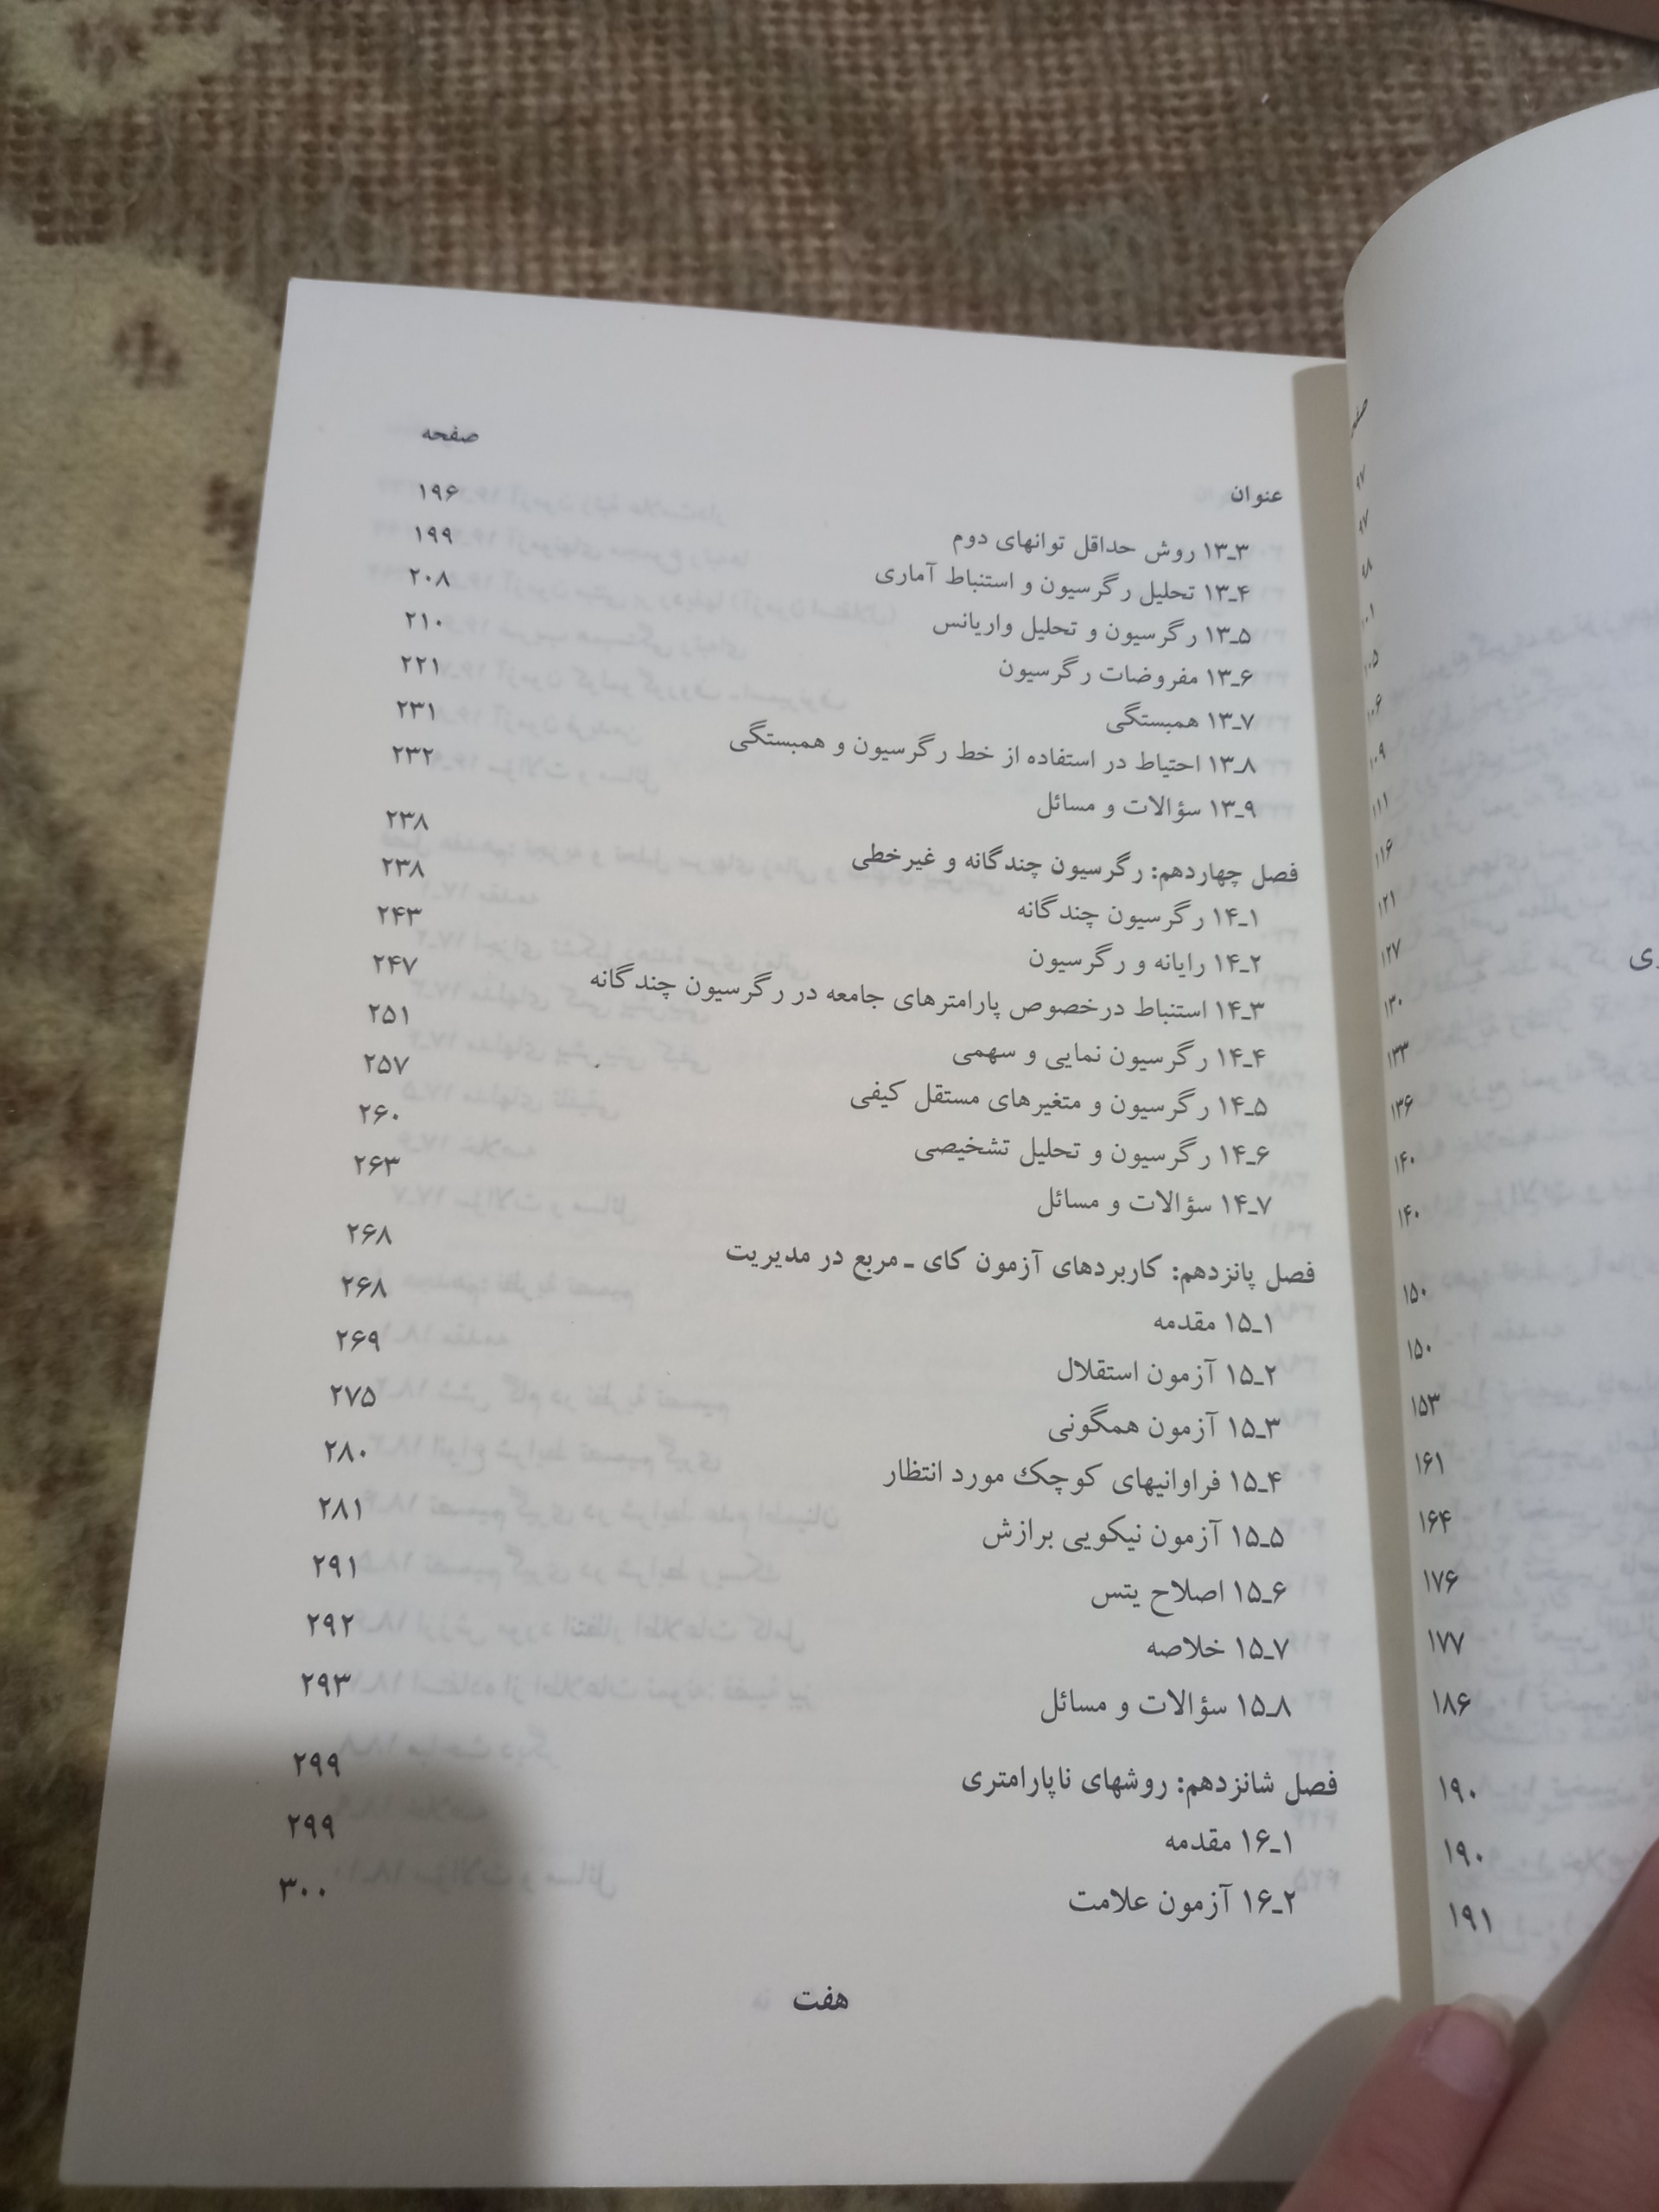 عنوان صفحه
۱۳ـ۳ روش حداقل توانهای دوم ۱۹۶
۱۳ـ۴ تحلیل رگرسیون و استنباط آماری ۱۹۹
۱۳ـ۵ رگرسیون و تحلیل واریانس ۲۰۸
۱۳ـ۶ مفروضات رگرسیون ۲۱۰
۱۳ـ۷ همبستگی ۲۲۱
۱۳ـ۸ احتیاط در استفاده از خط رگرسیون و همبستگی ۲۳۱
۱۳ـ۹ سؤالات و مسائل ۲۳۲
فصل چهاردهم: رگرسیون چندگانه و غیرخطی ۲۳۸
۱۴ـ۱ رگرسیون چندگانه ۲۳۸
۱۴ـ۲ رایانه و رگرسیون ۲۴۳
۱۴ـ۳ استنباط درخصوص پارامترهای جامعه در رگرسیون چندگانه ۲۴۷
۱۴ـ۴ رگرسیون نمایی و سهمی ۲۵۱
۱۴ـ۵ رگرسیون و متغیرهای مستقل کیفی ۲۵۷
۱۴ـ۶ رگرسیون و تحلیل تشخیصی ۲۶۰
۱۴ـ۷ سؤالات و مسائل ۲۶۳
فصل پانزدهم: کاربردهای آزمون کای ـ مربع در مدیریت ۲۶۸
۱۵ـ۱ مقدمه ۲۶۸
۱۵ـ۲ آزمون استقلال ۲۶۹
۱۵ـ۳ آزمون همگونی ۲۷۵
۱۵ـ۴ فراوانیهای کوچک مورد انتظار ۲۸۰
۱۵ـ۵ آزمون نیکویی برازش ۲۸۱
۱۵ـ۶ اصلاح یتس ۲۹۱
۱۵ـ۷ خلاصه ۲۹۲
۱۵ـ۸ سؤالات و مسائل ۲۹۳
فصل شانزدهم: روشهای ناپارامتری ۲۹۹
۱۶ـ۱ مقدمه ۲۹۹
۱۶ـ۲ آزمون علامت ۳۰۰
هفت
۱۰۵
۱۰۶
۱۰۹
۱۱۱
۱۱۶
۱۲۱
۱۲۷
۱۳۰
۱۳۳
۱۳۶
۱۴۰
۱۴۰
۱۵۰
۱۵۰
۱۵۳
۱۶۱
۱۶۴
۱۷۶
۱۷۷
۱۸۶
۱۹۰
۱۹۰
۱۹۱